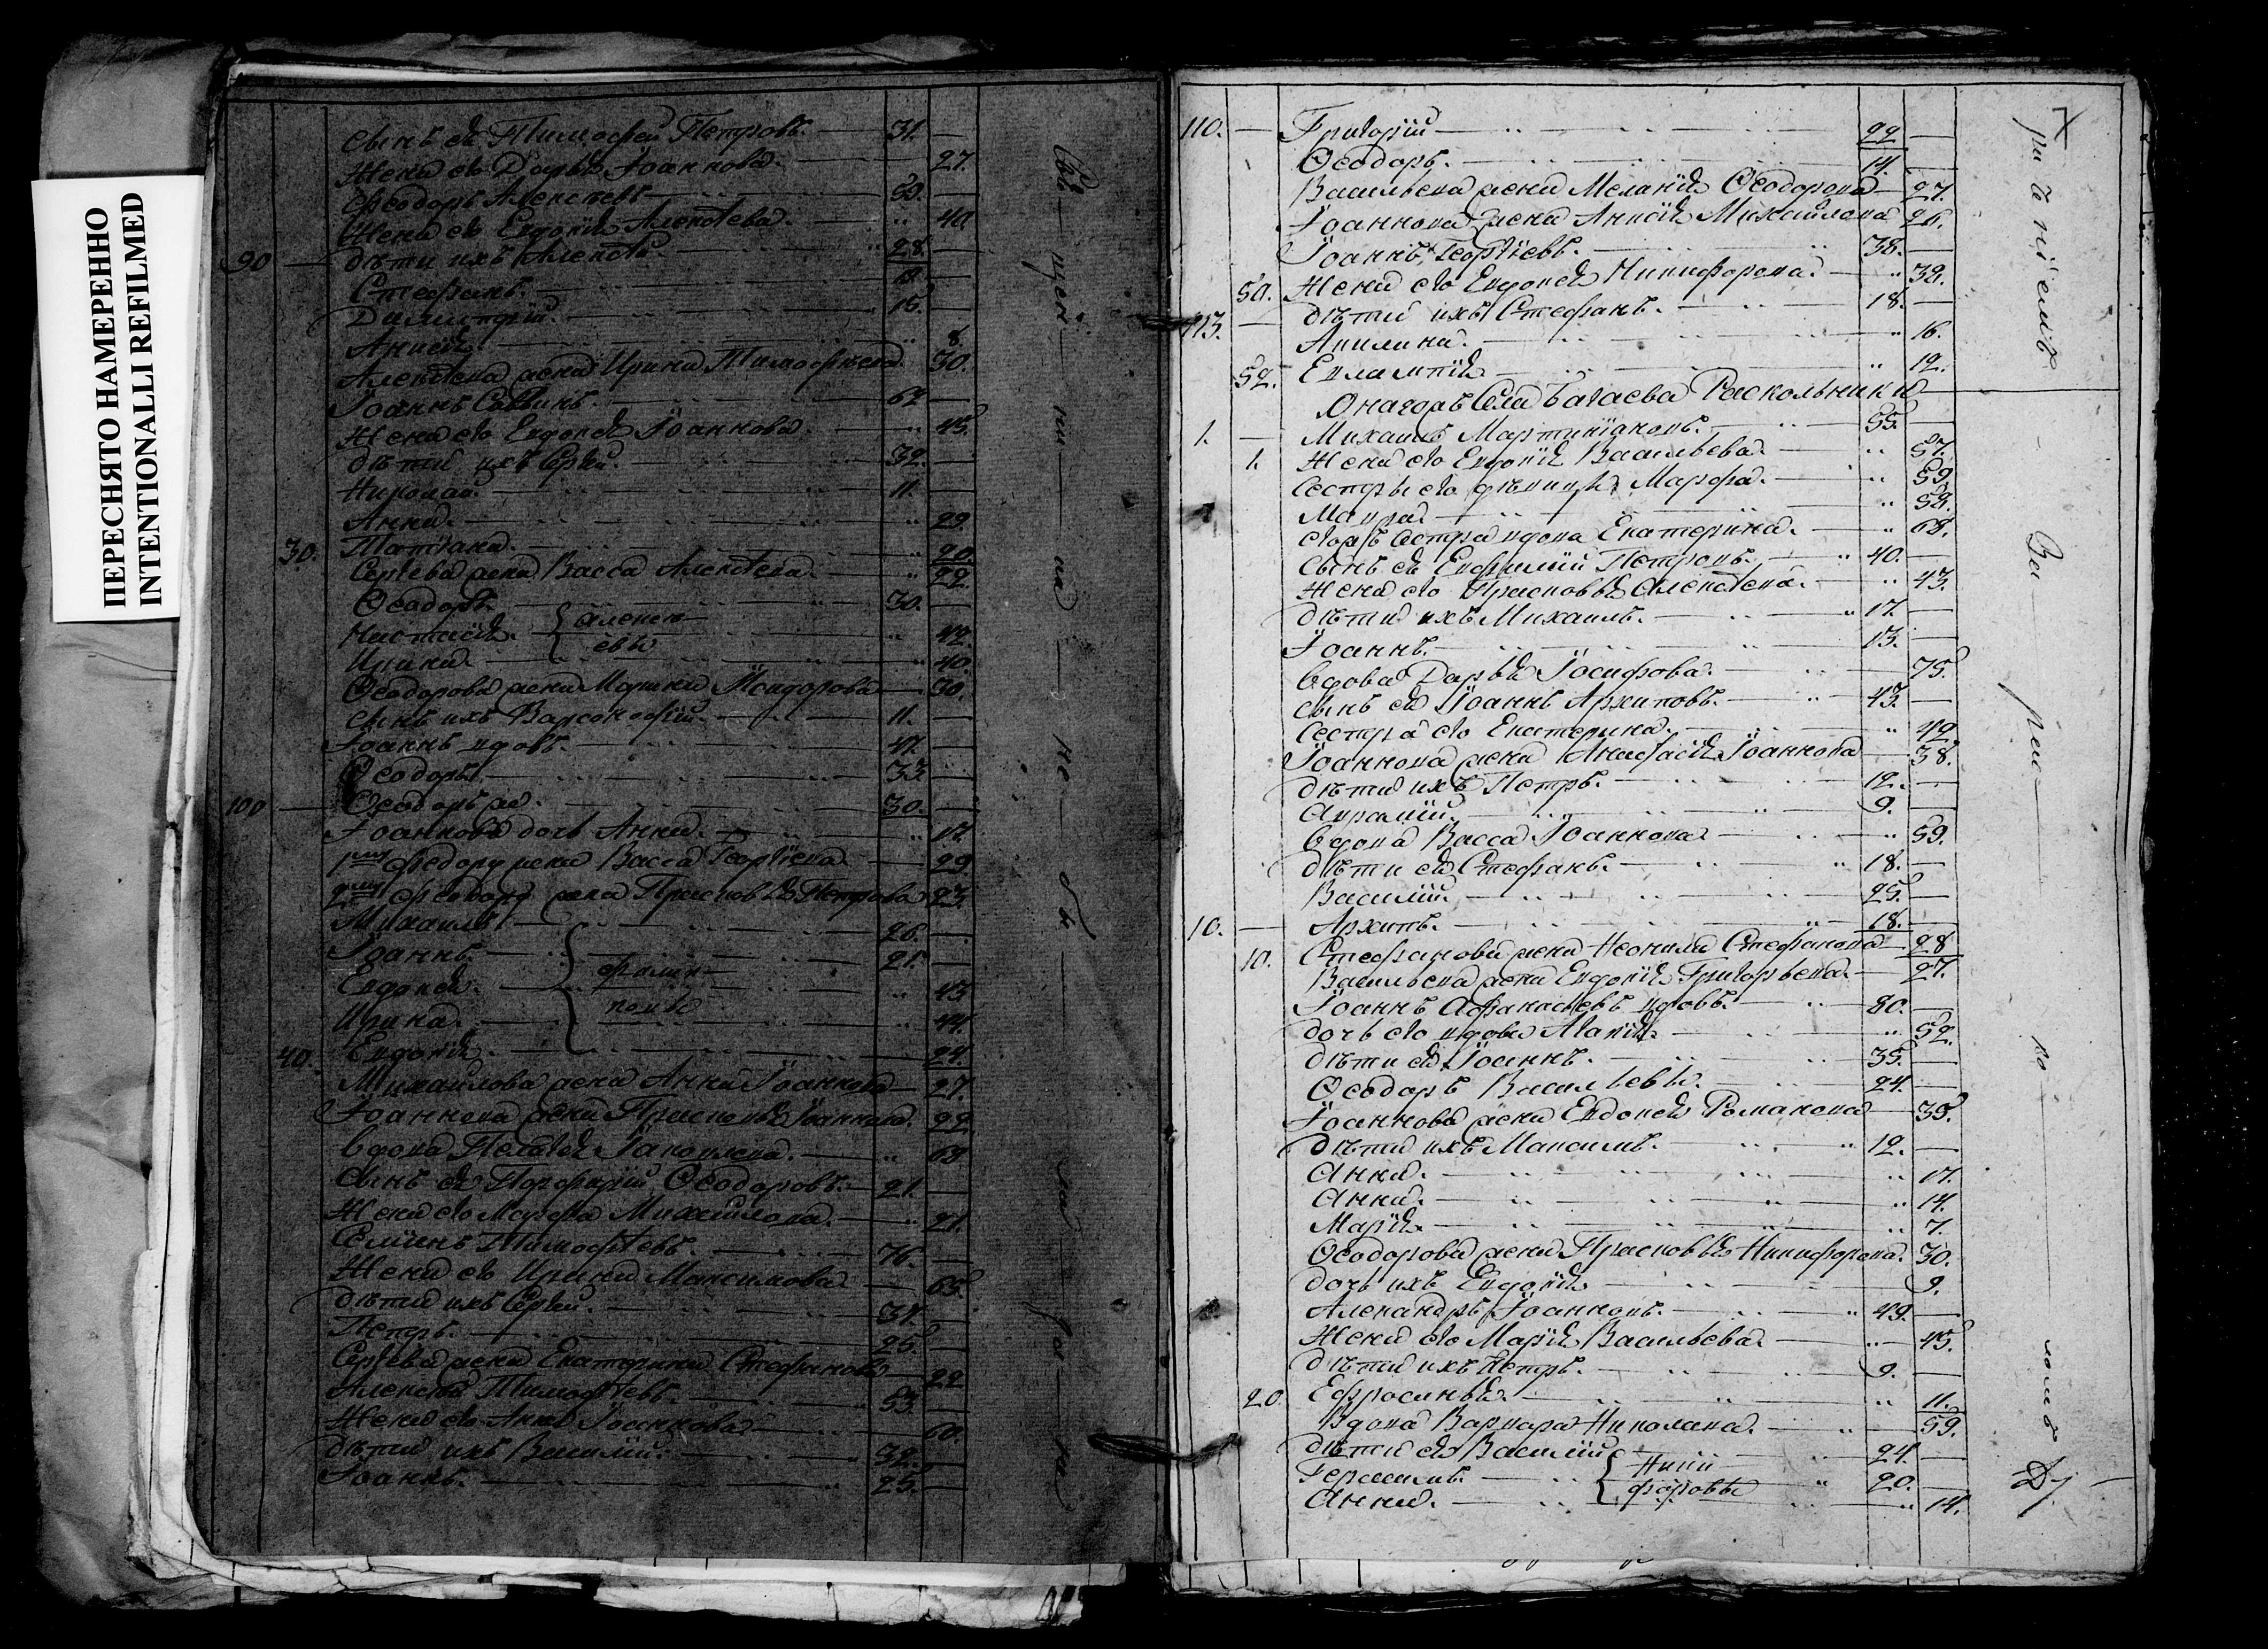 ПЕРЕСНЯТО НАМЕРЕННО
INTENTIONALLI REFILMED
сынъ еѣ Тимофей Петровъ. 31.
Жена его Дарья Іоаннова. 27.
Феодоръ Алексѣевъ 59.
Жена его Евдокія Алексѣева. 40
90 дѣти ихъ Алексѣй 28.
Стефанъ. 18.
Димитрій. 15.
Анисія. 8.
Алексѣева жена Ирина Тимофѣева. 30.
Іоаннъ Саввинъ. 62
Жена его Евдокія Іоаннова. 45.
дѣти ихъ Сергій. 32.
Николай. 11.
Анна. 29.
30. Татіана. 20.
Сергѣева жена Васса Алексѣева. 22.
Ѳеодоръ 30.
Настасія. Алексѣ 42.
Ирина. евы 40.
Ѳеодорова жена Марина Исидорова 30.
сынъ ихъ Варсонофій. 11.
Іоаннъ вдовъ. 47.
Ѳеодоръ 33
100 Ѳеодоръ же. 30.
Іоаннова дочь Анна. 17.
1му Феодору жена Васса Георгіева 29.
2му Феодору жена Прасковья Петрова 23
Михаилъ 26.
Іоаннъ. 21.
Евдокія. 43
Ирина. 44.
40. Евдокія. 24.
Михаилова жена Анна Іоаннова 27.
Іоаннова жена Прасковья Іоаннова. 22.
Вдова Пелагія Іаковлева. 63
Сынъ еѣ Порфирій Ѳеодоровъ. 21.
Жена его Марфа Михайлова. 21.
Семіенъ Тимофѣевъ. 76.
Жена его Ирина Максимова 65.
дѣти ихъ Сергій. 37.
Петръ. 25.
Сергѣева жена Екатерина Стефанова 22
Алексѣй Тимофѣевъ. 53.
Жена его Анна Іоаннова 60.
дѣти ихъ Василій. 32.
Іоаннъ. 25.
110. Григорій 22
Ѳеодоръ. 14.
Васильева жена Меланія Ѳеодорова 27.
Іоаннова жена Анисія Михайлова 26.
Іоаннъ Георгіевъ. 38.
50. Жена его Евдокія Никифорова. 32.
113. дѣти ихъ Стефанъ. 18.
Акилина. 16.
52. Евлампія 12.
Онагожъ Села Багаева Раскольники
1. Михаилъ Мартиніановъ. 55.
1. Жена его Евдокія Васильева. 57.
Сестры его дѣвицы Марфа. 59.
Мавра. 52.
его жъ сестра вдова Екатерина. 68.
Сынъ еѣ Евфимій Петровъ. 40.
Жена его Прасковья Алексѣева. 43.
дѣти ихъ Михаилъ. 17.
Іоаннъ. 13.
Вдова Дарья Іосифова. 75.
сынъ еѣ Іоаннъ Архиповъ. 43.
Сестра его Екатерина. 42
Іоаннова жена Анастасія Іоаннова 38.
дѣти ихъ Петръ. 12.
Аврамій. 9.
Вдова Васса Іоаннова 59.
дѣти еѣ Стефанъ. 18.
Василій. 25.
10. Архипъ. 18.
10. Стефанова жена Неонила Стефанова 28
Васильева жена Евдокія Григорьева. 27.
Іоаннъ Афанасьевъ вдовъ. 80.
дочь его вдова Марія. 52.
дѣти еѣ Іоаннъ. 35.
Ѳеодоръ Васильевы. 24.
Іоаннова жена Евдокія Романова 35.
дѣти ихъ Максимъ. 12.
Анна. 17.
Анна. 14.
Марія. 7.
Ѳеодорова жена Прасковья Никифорова. 30.
дочь ихъ Евдокія 9.
Александръ Іоанновъ. 49.
Жена его Марія Васильева 45.
дѣти ихъ Петръ. 9.
20. Ефросинья. 11.
Вдова Варвара Николаева. 59.
дѣти еѣ Василій Ники 24.
Герасимъ. форовы 20.
Анна. 14.